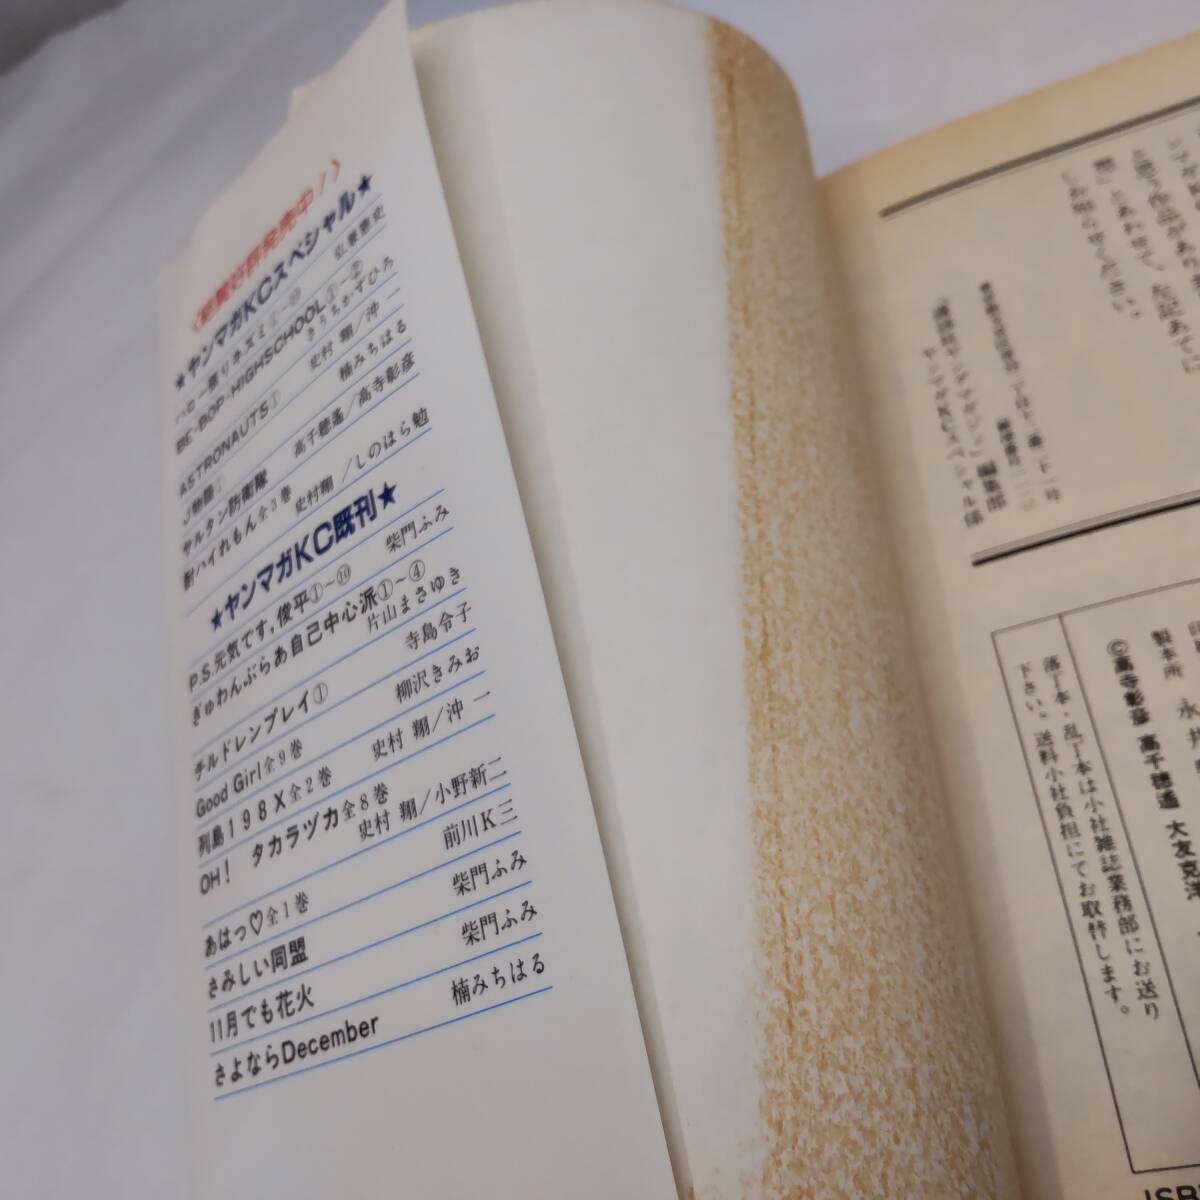 〈絶賛好評発売中！〉
★ヤンマガKCスペシャル★
ハロー張りネズミ①〜⑩ 弘兼憲史
BE-BOP-HIGHSCHOOL①〜② きうちかずひろ
ASTRONAUTS① 史村 翔／沖 一
J物語① 楠みちはる
サルタン防衛隊 高千穂遙／高寺彰彦
酎ハイれもん全3巻 史村翔／しのはら勉
★ヤンマガKC既刊★
P.S.元気です,俊平①〜⑩ 柴門ふみ
ぎゅわんぶらあ自己中心派①〜④ 片山まさゆき
チルドレンプレイ① 寺島令子
Good Girl全9巻 柳沢きみお
列島198X全2巻 史村 翔／沖 一
OH! タカラヅカ全8巻 史村 翔／小野新二
あはっ♡全1巻 前川K三
さみしい同盟 柴門ふみ
11月でも花火 柴門ふみ
さよならDecember 楠みちはる
と思う作品があり
とあわせて、左記あてに
お知らせください。
編集部
ヤンマガKCスペシャル係
製本所 永井
©高寺彰彦 高千穂遙 大友克洋
落丁本・乱丁本は小社雑誌業務部にお送り
下さい。送料小社負担にてお取替します。